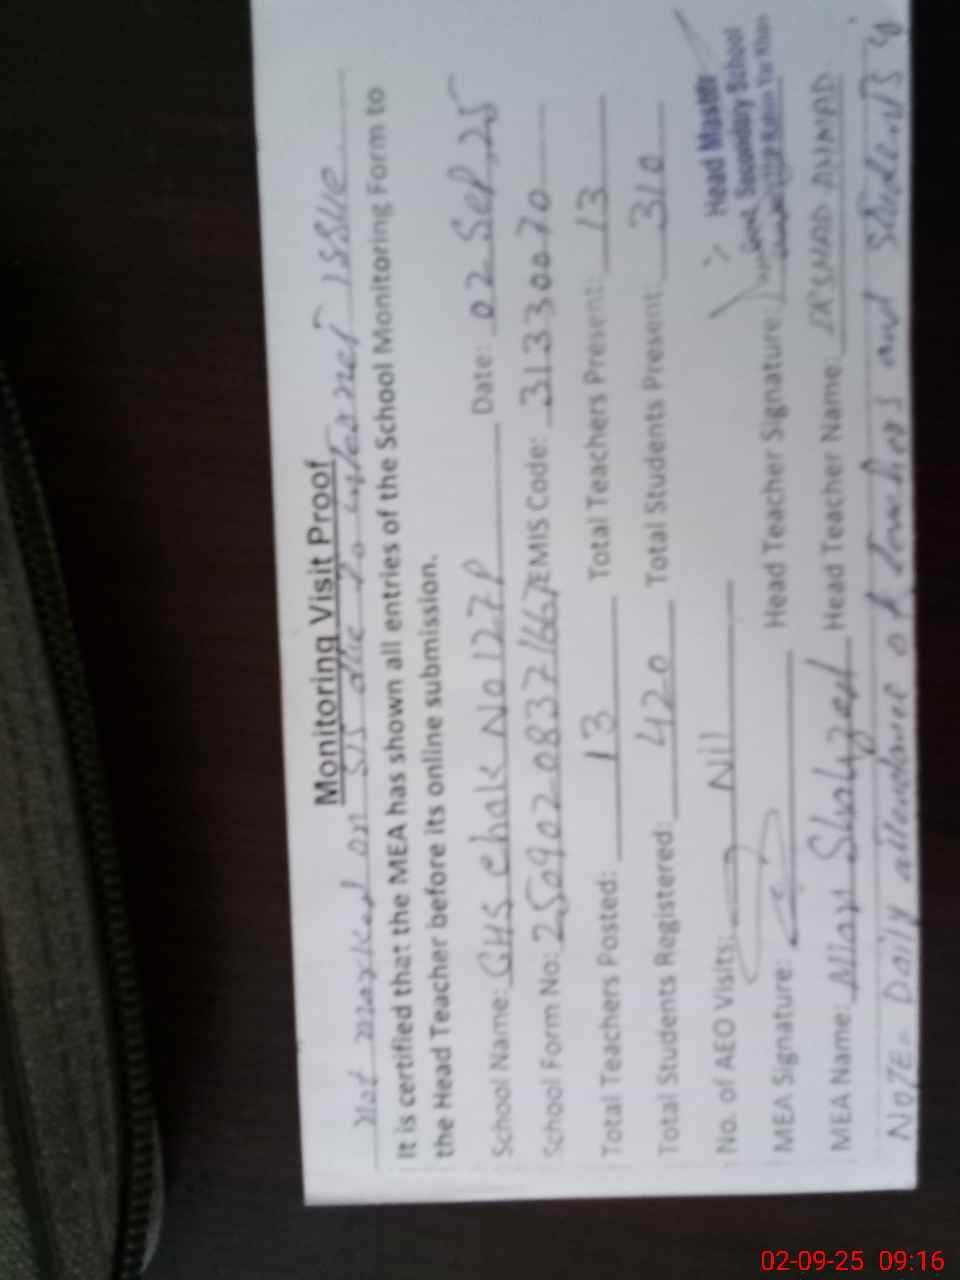 Not marked on SIS due to internet issue
Monitoring Visit Proof
It is certified that the MEA has shown all entries of the School Monitoring Form to
the Head Teacher before its online submission.
School Name: GHS Chak No 127P Date: 02 Sep, 25
School Form No: EMIS Code: 31330070
Total Teachers Posted: 13 Total Teachers Present: 13
Total Students Registered: 420 Total Students Present: 310
No. of AEO Visits: Nil
Head Master
Govt. Secondary School
Rahim Yar Khan
MEA Signature: Head Teacher Signature:
MEA Name: Head Teacher Name: IRSHAD AHMAD
NOTE:- Daily attendance of teachers and students is
02-09-25 09:16